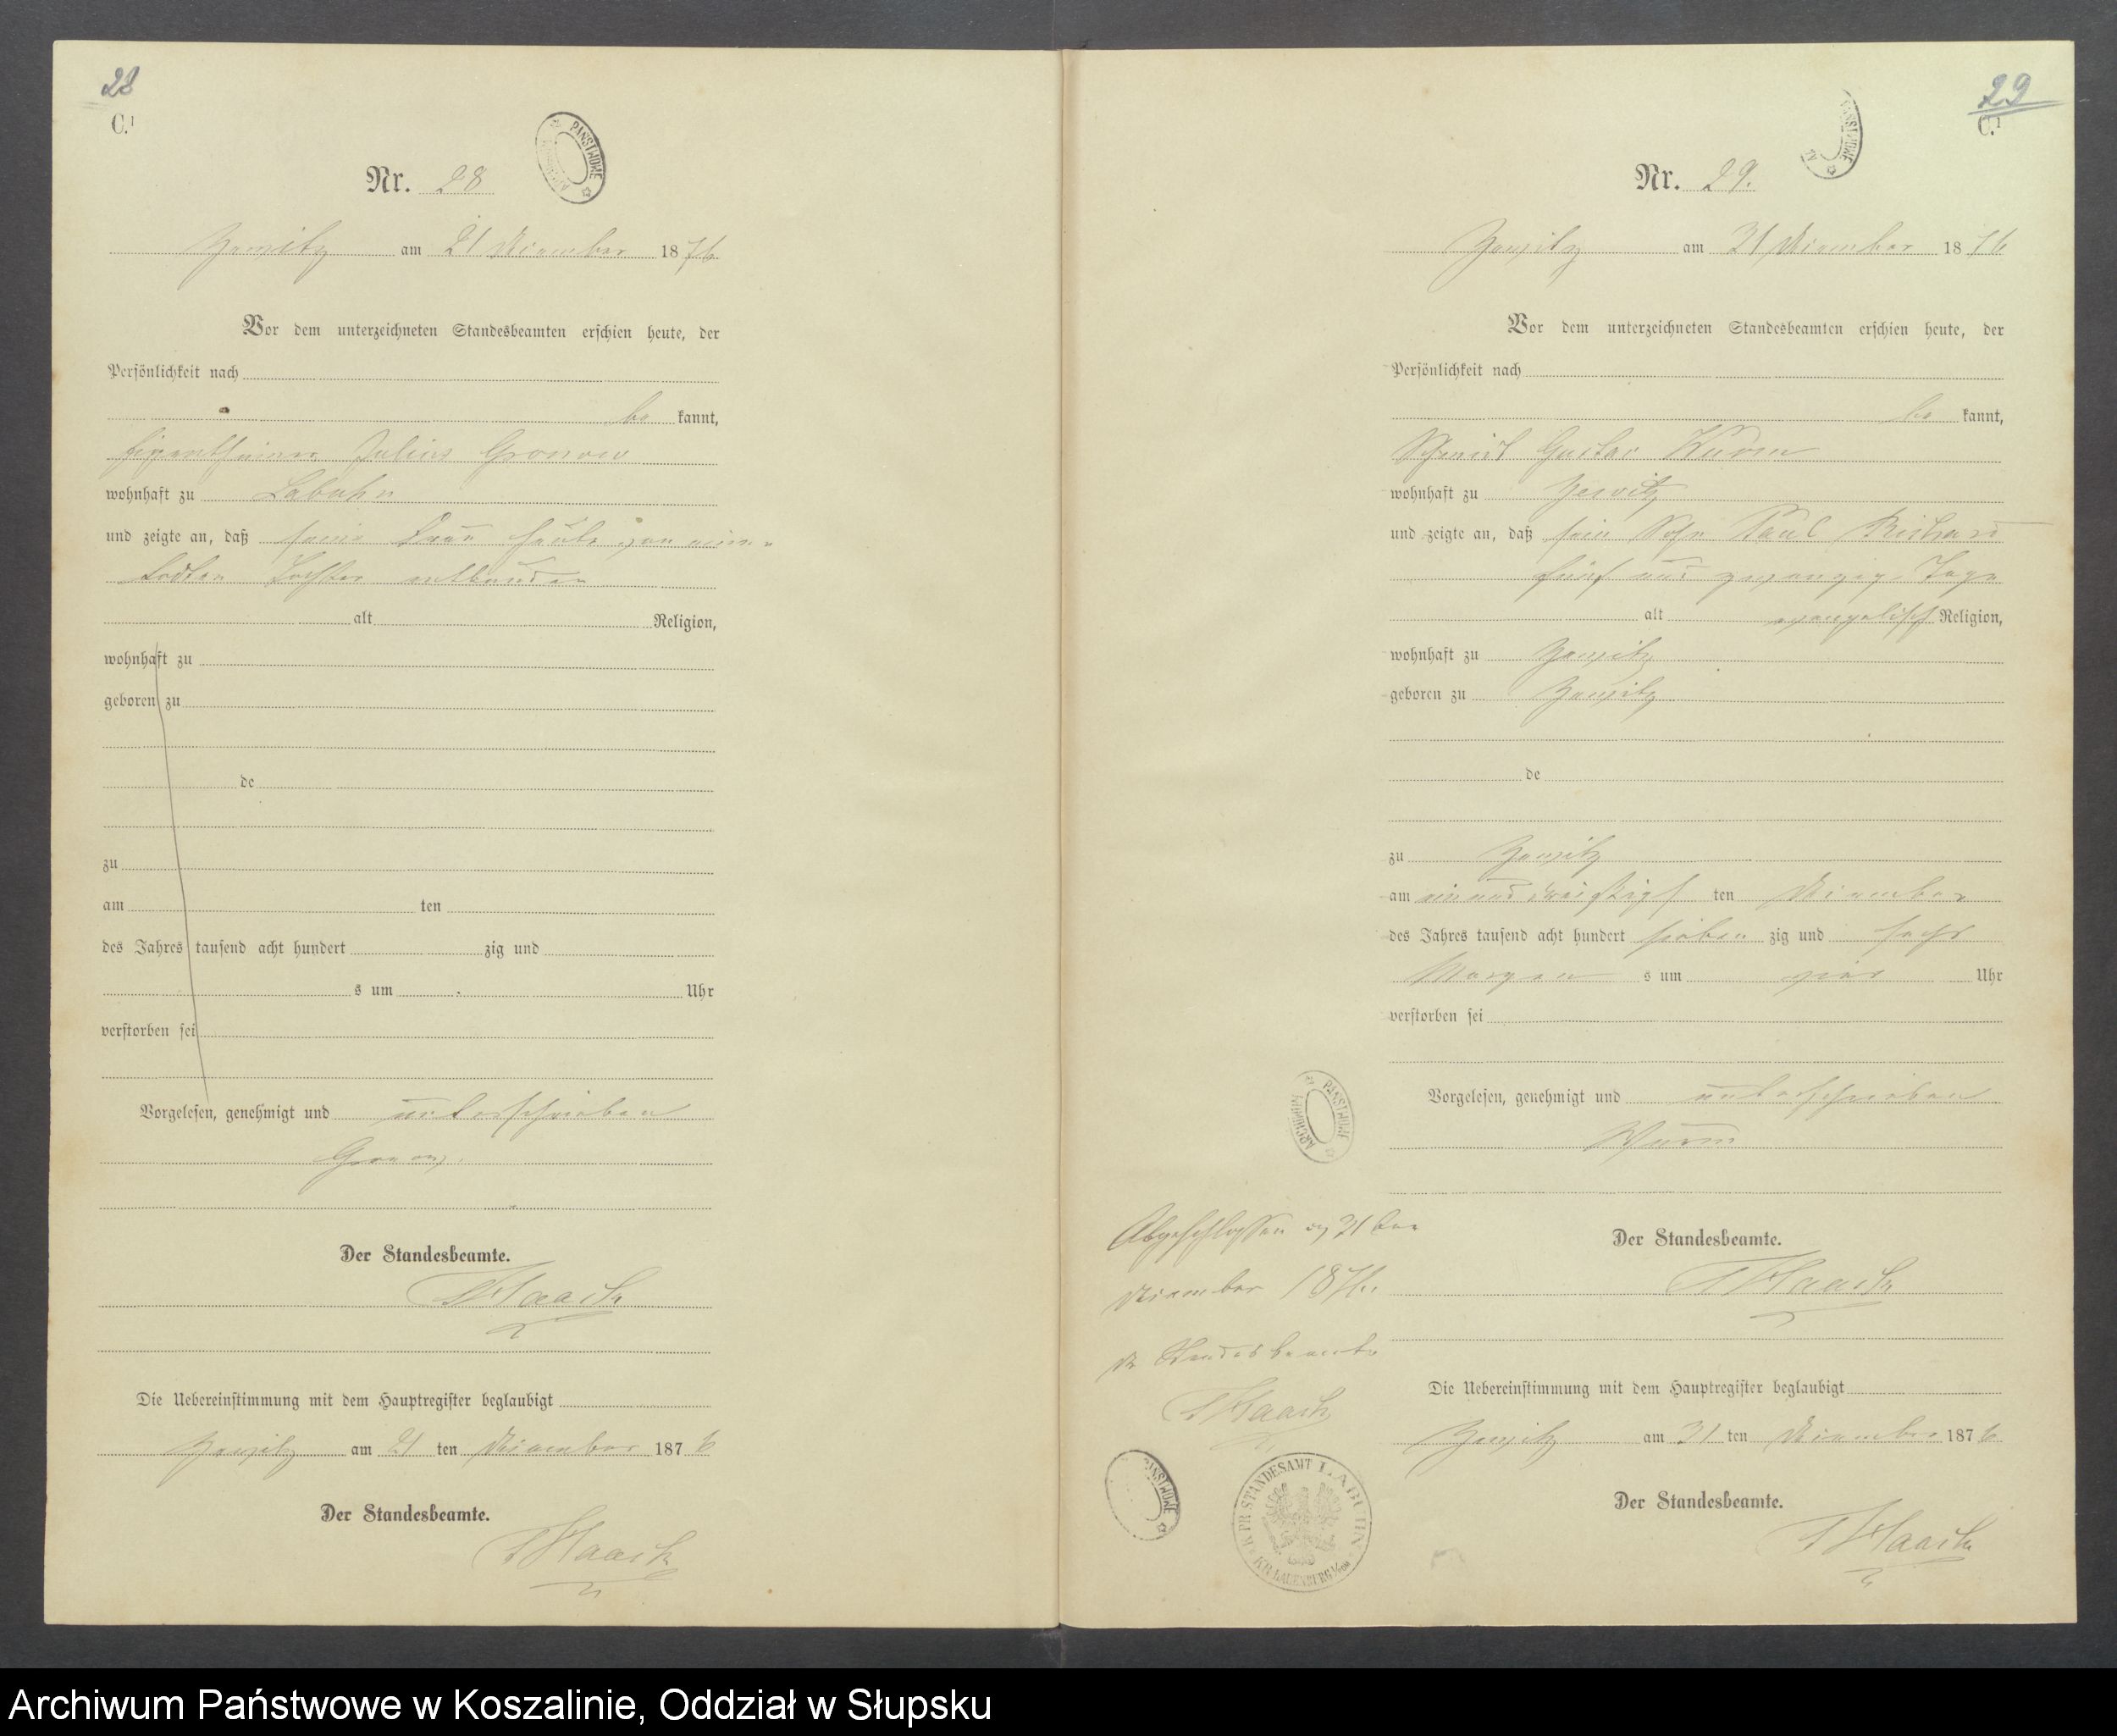 28
C.¹
PAŃSTWOWE ARCHIWUM
Nr. 28
am 21 Dezember 1876
Vor dem unterzeichneten Standesbeamten erschien heute, der
Persönlichkeit nach
be kannt,
Eigenthümer Julius Gronow
wohnhaft zu Labuhn
und zeigte an, daß seine Frau heute von einer
todten Tochter entbunden
alt Religion,
wohnhaft zu
geboren zu
de
zu
am ten
des Jahres tausend acht hundert zig und
s um Uhr
verstorben sei
Vorgelesen, genehmigt und unterschrieben
Gronow.
Der Standesbeamte.
Haack
Die Uebereinstimmung mit dem Hauptregister beglaubigt
am 21 ten Dezember 1876
Der Standesbeamte.
Haack
29
C.¹
PAŃSTWOWE
Nr. 29.
am 31 Dezember 1876
Vor dem unterzeichneten Standesbeamten erschien heute, der
Persönlichkeit nach
be kannt,
Schmied Gustav Wurm
wohnhaft zu
und zeigte an, daß sein Sohn Paul Richard
fünf und zwanzig Tage
alt evangelisch Religion,
wohnhaft zu
geboren zu
de
zu
am ein und dreißigst ten Dezember
des Jahres tausend acht hundert sieben zig und sechs
Morgen s um vier Uhr
verstorben sei
Vorgelesen, genehmigt und unterschrieben
Wurm
Der Standesbeamte.
Haack
Die Uebereinstimmung mit dem Hauptregister beglaubigt
am 31 ten Dezember 1876
Der Standesbeamte.
Haack
ARCHIWUM PAŃSTWOWE
Abgeschlossen 31 ten
Dezember 1876.
Der Standesbeamte
Haack
PAŃSTWOWE
K. PR. STANDESAMT LABUHN
KR. LAUENBURG
Archiwum Państwowe w Koszalinie, Oddział w Słupsku